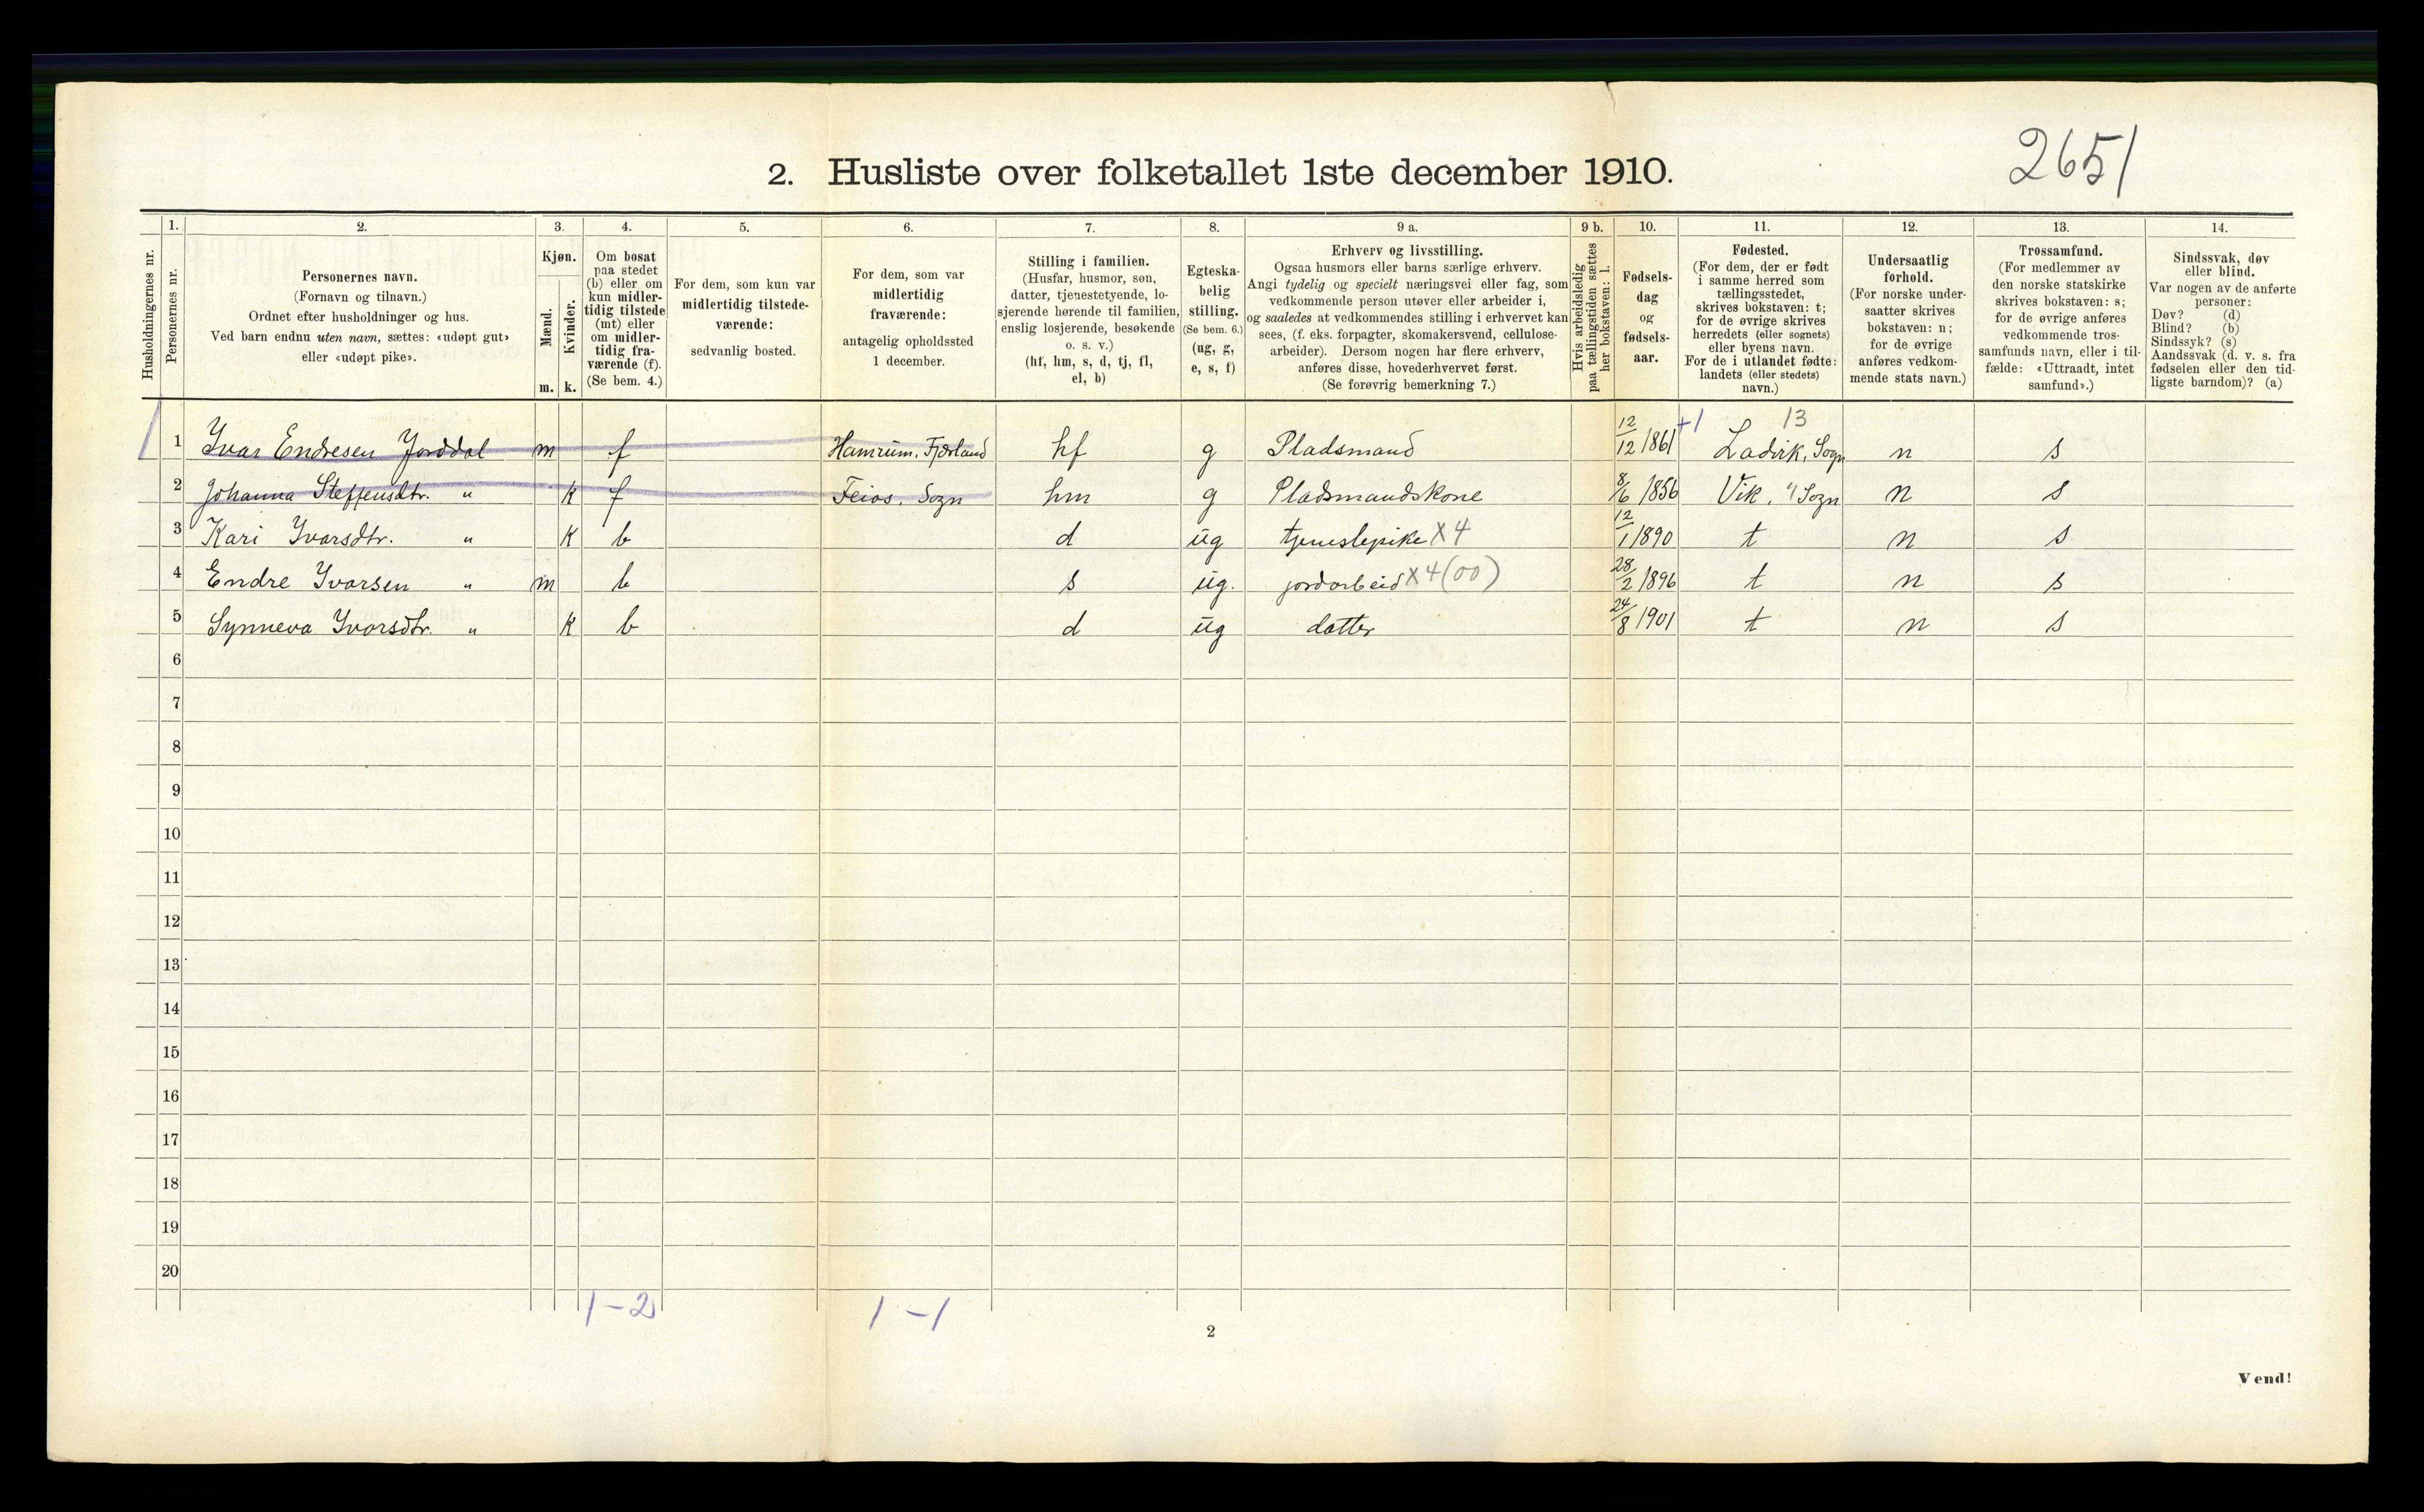 2651
2. Husliste over folketallet 1ste december 1910.
Husholdningernes nr.
1. Personernes nr.
2. Personernes navn.
(Fornavn og tilnavn.)
Ordnet efter husholdninger og hus.
Ved barn endnu uten navn, sættes: «udøpt gut»
eller «udøpt pike».
3. Kjøn.
Mænd. m.
Kvinder. k.
4. Om bosat
paa stedet
(b) eller om
kun midler-
tidig tilstede
(mt) eller
om midler-
tidig fra-
værende (f).
(Se bem. 4.)
5. For dem, som kun var
midlertidig tilstede-
værende:
sedvanlig bosted.
6. For dem, som var
midlertidig
fraværende:
antagelig opholdssted
1 december.
7. Stilling i familien.
(Husfar, husmor, søn,
datter, tjenestetyende, lo-
sjerende hørende til familien,
enslig losjerende, besøkende
o. s. v.)
(hf, hm, s, d, tj, fl,
el, b)
8. Egteska-
belig
stilling.
(Se bem. 6.)
(ug, g,
e, s, f)
9 a. Erhverv og livsstilling.
Ogsaa husmors eller barns særlige erhverv.
Angi tydelig og specielt næringsvei eller fag, som
vedkommende person utøver eller arbeider i,
og saaledes at vedkommendes stilling i erhvervet kan
sees, (f. eks. forpagter, skomakersvend, cellulose-
arbeider). Dersom nogen har flere erhverv,
anføres disse, hovederhvervet først.
(Se forøvrig bemerkning 7.)
9 b. Hvis arbeidsledig
paa tællingstiden sættes
her bokstaven: l.
10. Fødsels-
dag
og
fødsels-
aar.
11. Fødested.
(For dem, der er født
i samme herred som
tællingsstedet,
skrives bokstaven: t;
for de øvrige skrives
herredets (eller sognets)
eller byens navn.
For de i utlandet fødte:
landets (eller stedets)
navn.)
12. Undersaatlig
forhold.
(For norske under-
saatter skrives
bokstaven: n;
for de øvrige
anføres vedkom-
mende stats navn.)
13. Trossamfund.
(For medlemmer av
den norske statskirke
skrives bokstaven: s;
for de øvrige anføres
vedkommende tros-
samfunds navn, eller i til-
fælde: «Uttraadt, intet
samfund».)
14. Sindssvak, døv
eller blind.
Var nogen av de anførte
personer:
Døv? (d)
Blind? (b)
Sindssyk? (s)
Aandssvak (d. v. s. fra
fødselen eller den tid-
ligste barndom)? (a)
1 1 Ivar Endresen Jorddal m f Hamrum, Fjærland hf g Pladsmand 12/12 1861 +1 13 Ladvik, Sogn n s
2 Johanna Steffensdtr. " k f Feios, Sogn hm g Pladsmandskone 8/6 1856 Vik, i/ Sogn n s
3 Kari Ivarsdtr. " k b d ug tjenestepike X4 12/1 1890 t n s
4 Endre Ivarsen " m b s ug. jordarbeid X4(00) 28/2 1896 t n s
5 Synneva Ivarsdtr. " k b d ug datter 24/8 1901 t n s
6
7
8
9
10
11
12
13
14
15
16
17
18
19
20
1-2 1-1
2
Vend!